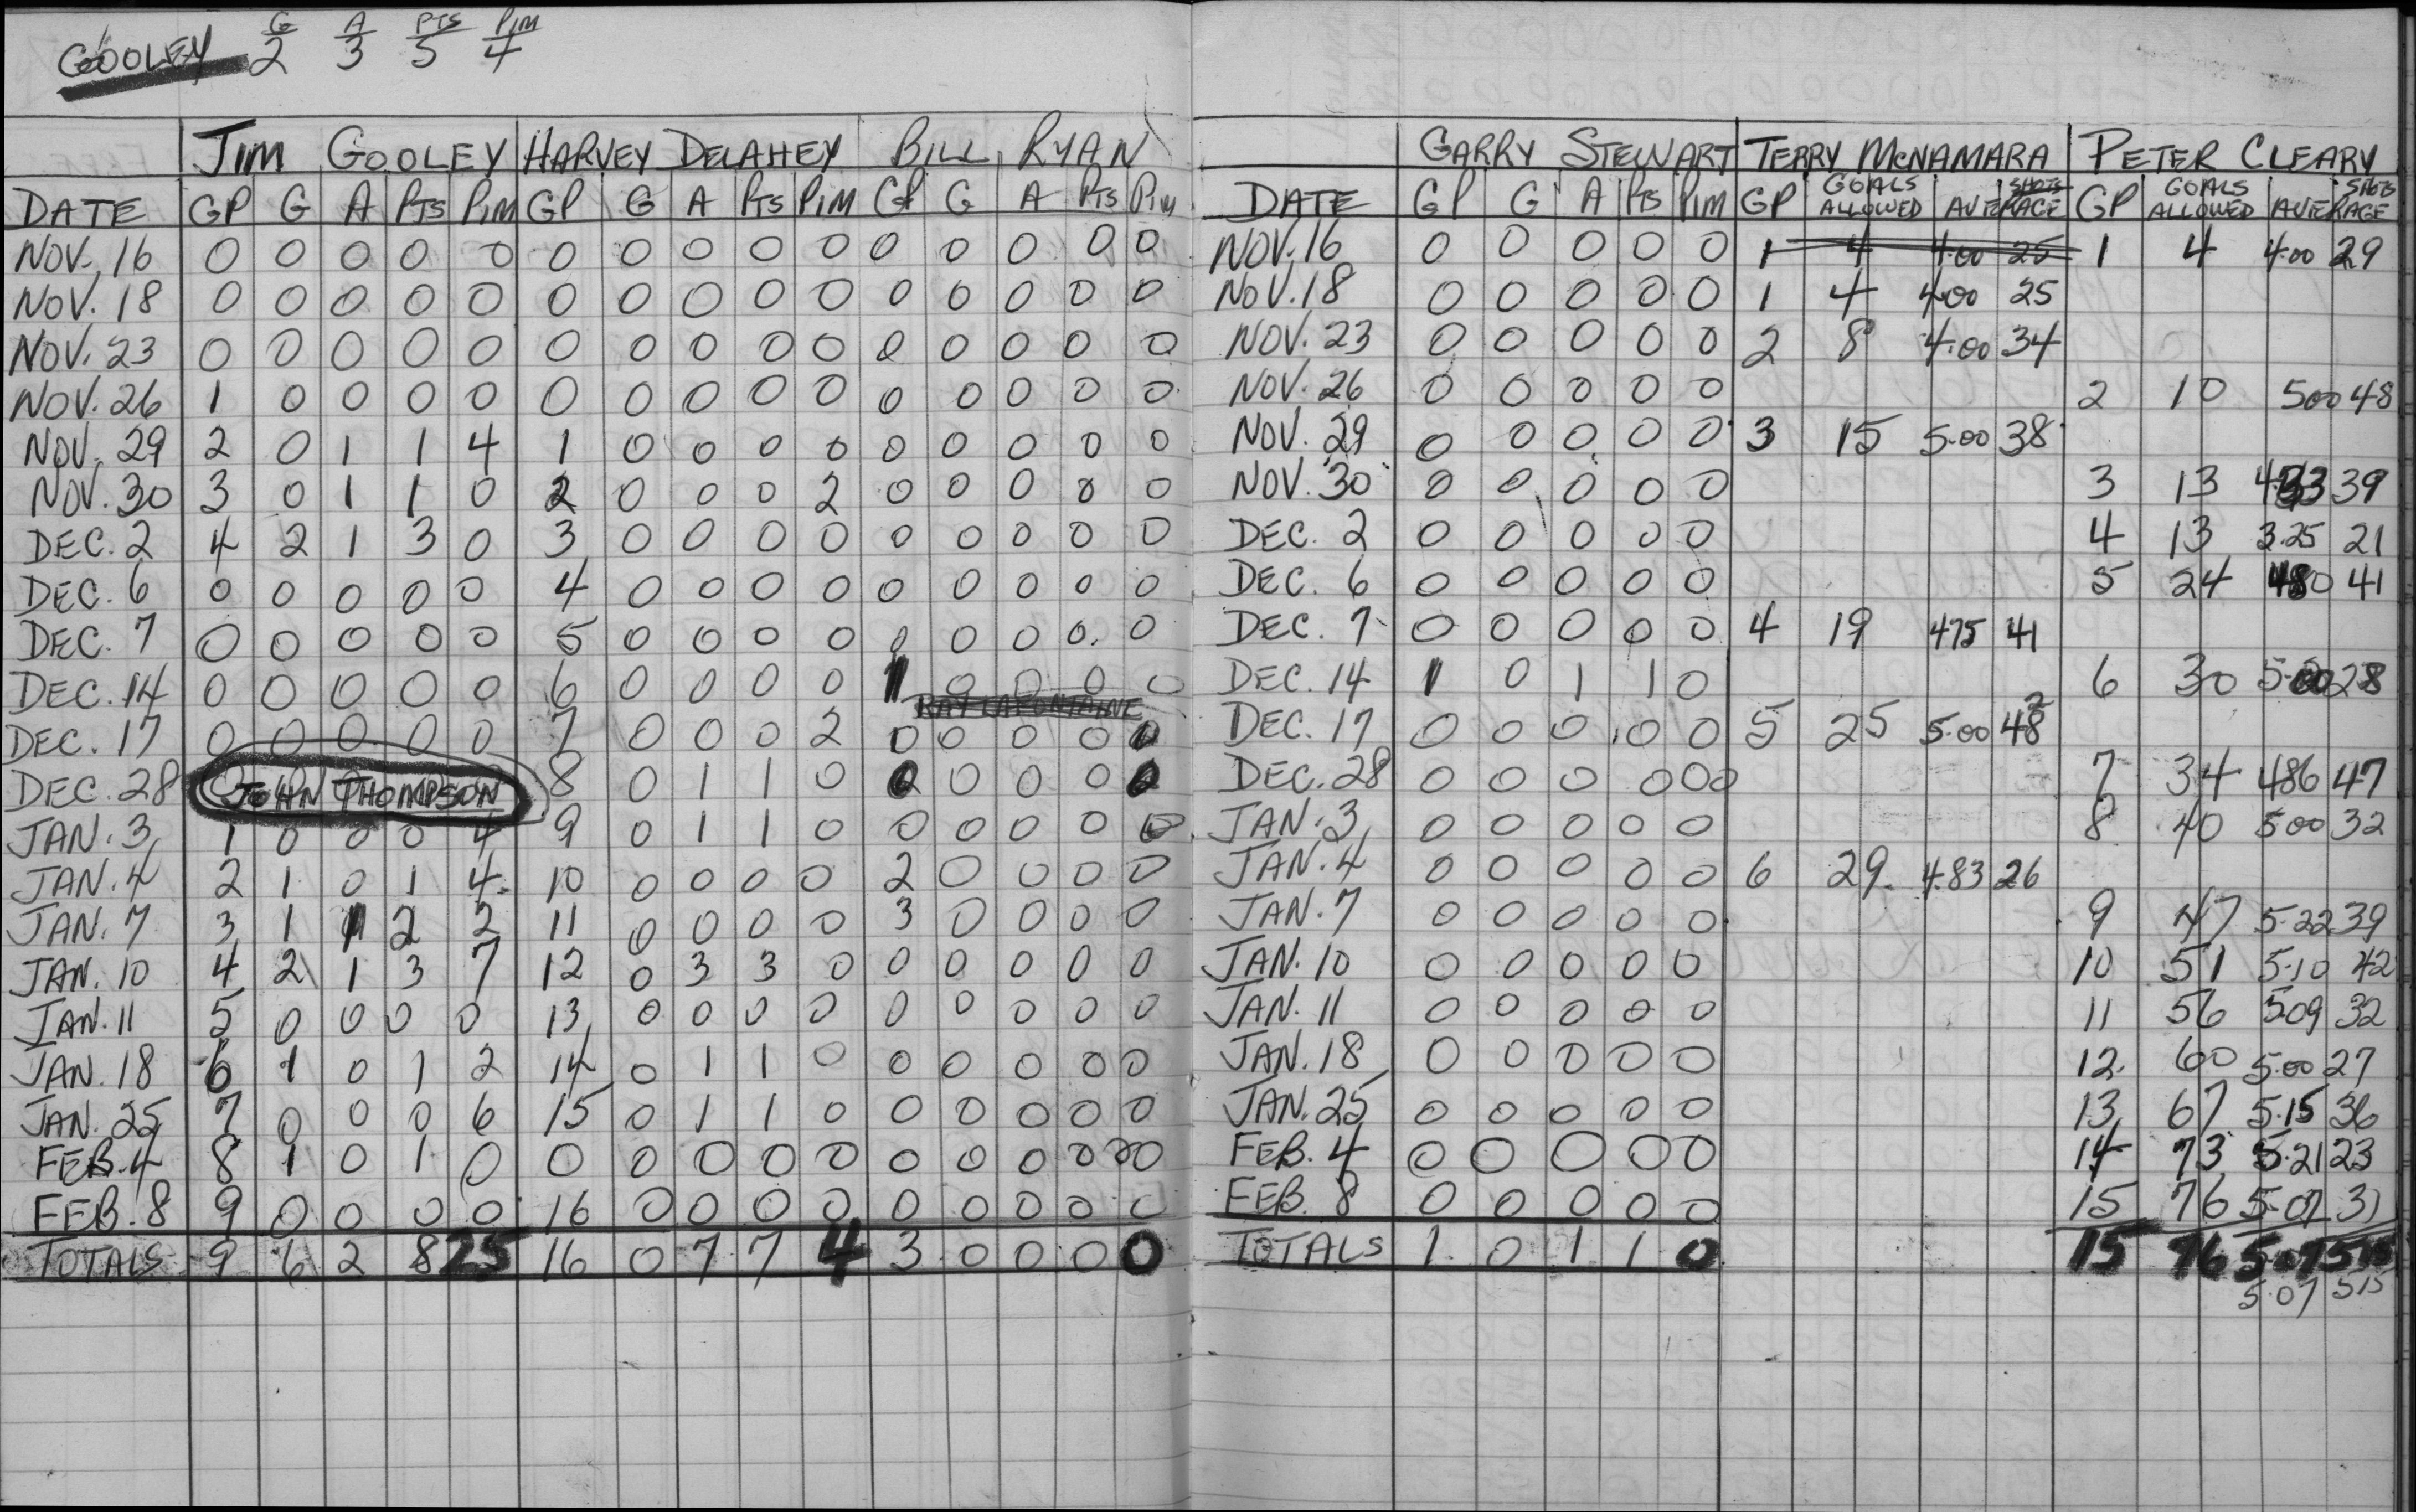 G A PTS PIM
GOOLEY 2 3 5 4
JIM GOOLEY HARVEY DELAHEY BILL RYAN
DATE GP G A PTS PIM GP G A PTS PIM GP G A PTS PIM
NOV. 16 0 0 0 0 0 0 0 0 0 0 0 0 0 0 0
NOV. 18 0 0 0 0 0 0 0 0 0 0 0 0 0 0 0
NOV. 23 0 0 0 0 0 0 0 0 0 0 0 0 0 0 0
NOV. 26 1 0 0 0 0 0 0 0 0 0 0 0 0 0 0
NOV. 29 2 0 1 1 4 1 0 0 0 0 0 0 0 0 0
NOV. 30 3 0 1 1 0 2 0 0 0 2 0 0 0 0 0
DEC. 2 4 2 1 3 0 3 0 0 0 0 0 0 0 0 0
DEC. 6 0 0 0 0 0 4 0 0 0 0 0 0 0 0 0
DEC. 7 0 0 0 0 0 5 0 0 0 0 0 0 0 0. 0
DEC. 14 0 0 0 0 0 6 0 0 0 0 1 0 0 0 0
RAY LAFONTAINE
DEC. 17 0 0 0 0 0 7 0 0 0 2 0 0 0 0 0
DEC. 28 JOHN THOMPSON 8 0 1 1 0 0 0 0 0 0
JAN. 3 1 0 0 0 4 9 0 1 1 0 0 0 0 0 0
JAN. 4 2 1 0 1 4 10 0 0 0 0 2 0 0 0 0
JAN. 7 3 1 1 2 2 11 0 0 0 0 3 0 0 0 0
JAN. 10 4 2 1 3 7 12 0 3 3 0 0 0 0 0 0
JAN. 11 5 0 0 0 0 13 0 0 0 0 0 0 0 0 0
JAN. 18 6 1 0 1 2 14 0 1 1 0 0 0 0 0 0
JAN. 25 7 0 0 0 6 15 0 1 1 0 0 0 0 0 0
FEB. 4 8 1 0 1 0 0 0 0 0 0 0 0 0 0 0 0
FEB. 8 9 0 0 0 0 16 0 0 0 0 0 0 0 0 0
TOTALS 9 6 2 8 25 16 0 7 7 4 3 0 0 0 0
GARRY STEWART TERRY McNAMARA PETER CLEARY
DATE GP G A PTS PIM GP GOALS ALLOWED AVERAGE SHOTS GP GOALS ALLOWED AVERAGE SHOTS
NOV. 16 0 0 0 0 0 1 4 4.00 25 1 4 4.00 29
NOV. 18 0 0 0 0 0 1 4 4.00 25
NOV. 23 0 0 0 0 0 2 8 4.00 34
NOV. 26 0 0 0 0 0 2 10 500 48
NOV. 29 0 0 0 0 0 3 15 5.00 38
NOV. 30 0 0 0 0 0 3 13 4.33 39
DEC. 2 0 0 0 0 0 4 13 3.25 21
DEC. 6 0 0 0 0 0 5 24 480 41
DEC. 7 0 0 0 0 0 4 19 475 41
DEC. 14 1 0 1 1 0 6 30 5.00 28
DEC. 17 0 0 0 0 0 5 25 5.00 48 2
DEC. 28 0 0 0 0 0 0 7 34 486 47
JAN. 3 0 0 0 0 0 8 40 500 32
JAN. 4 0 0 0 0 0 6 29. 4.83 26
JAN. 7 0 0 0 0 0 9 47 5.22 39
JAN. 10 0 0 0 0 0 10 51 5.10 42
JAN. 11 0 0 0 0 0 11 56 509 32
JAN. 18 0 0 0 0 0 12. 60 5.00 27
JAN. 25 0 0 0 0 0 13 67 5.15 36
FEB. 4 0 0 0 0 0 14 73 5.21 23
FEB. 8 0 0 0 0 0 15 76 5.07 31
TOTALS 1 0 1 1 0 15 76 5.07 515
5.07 515